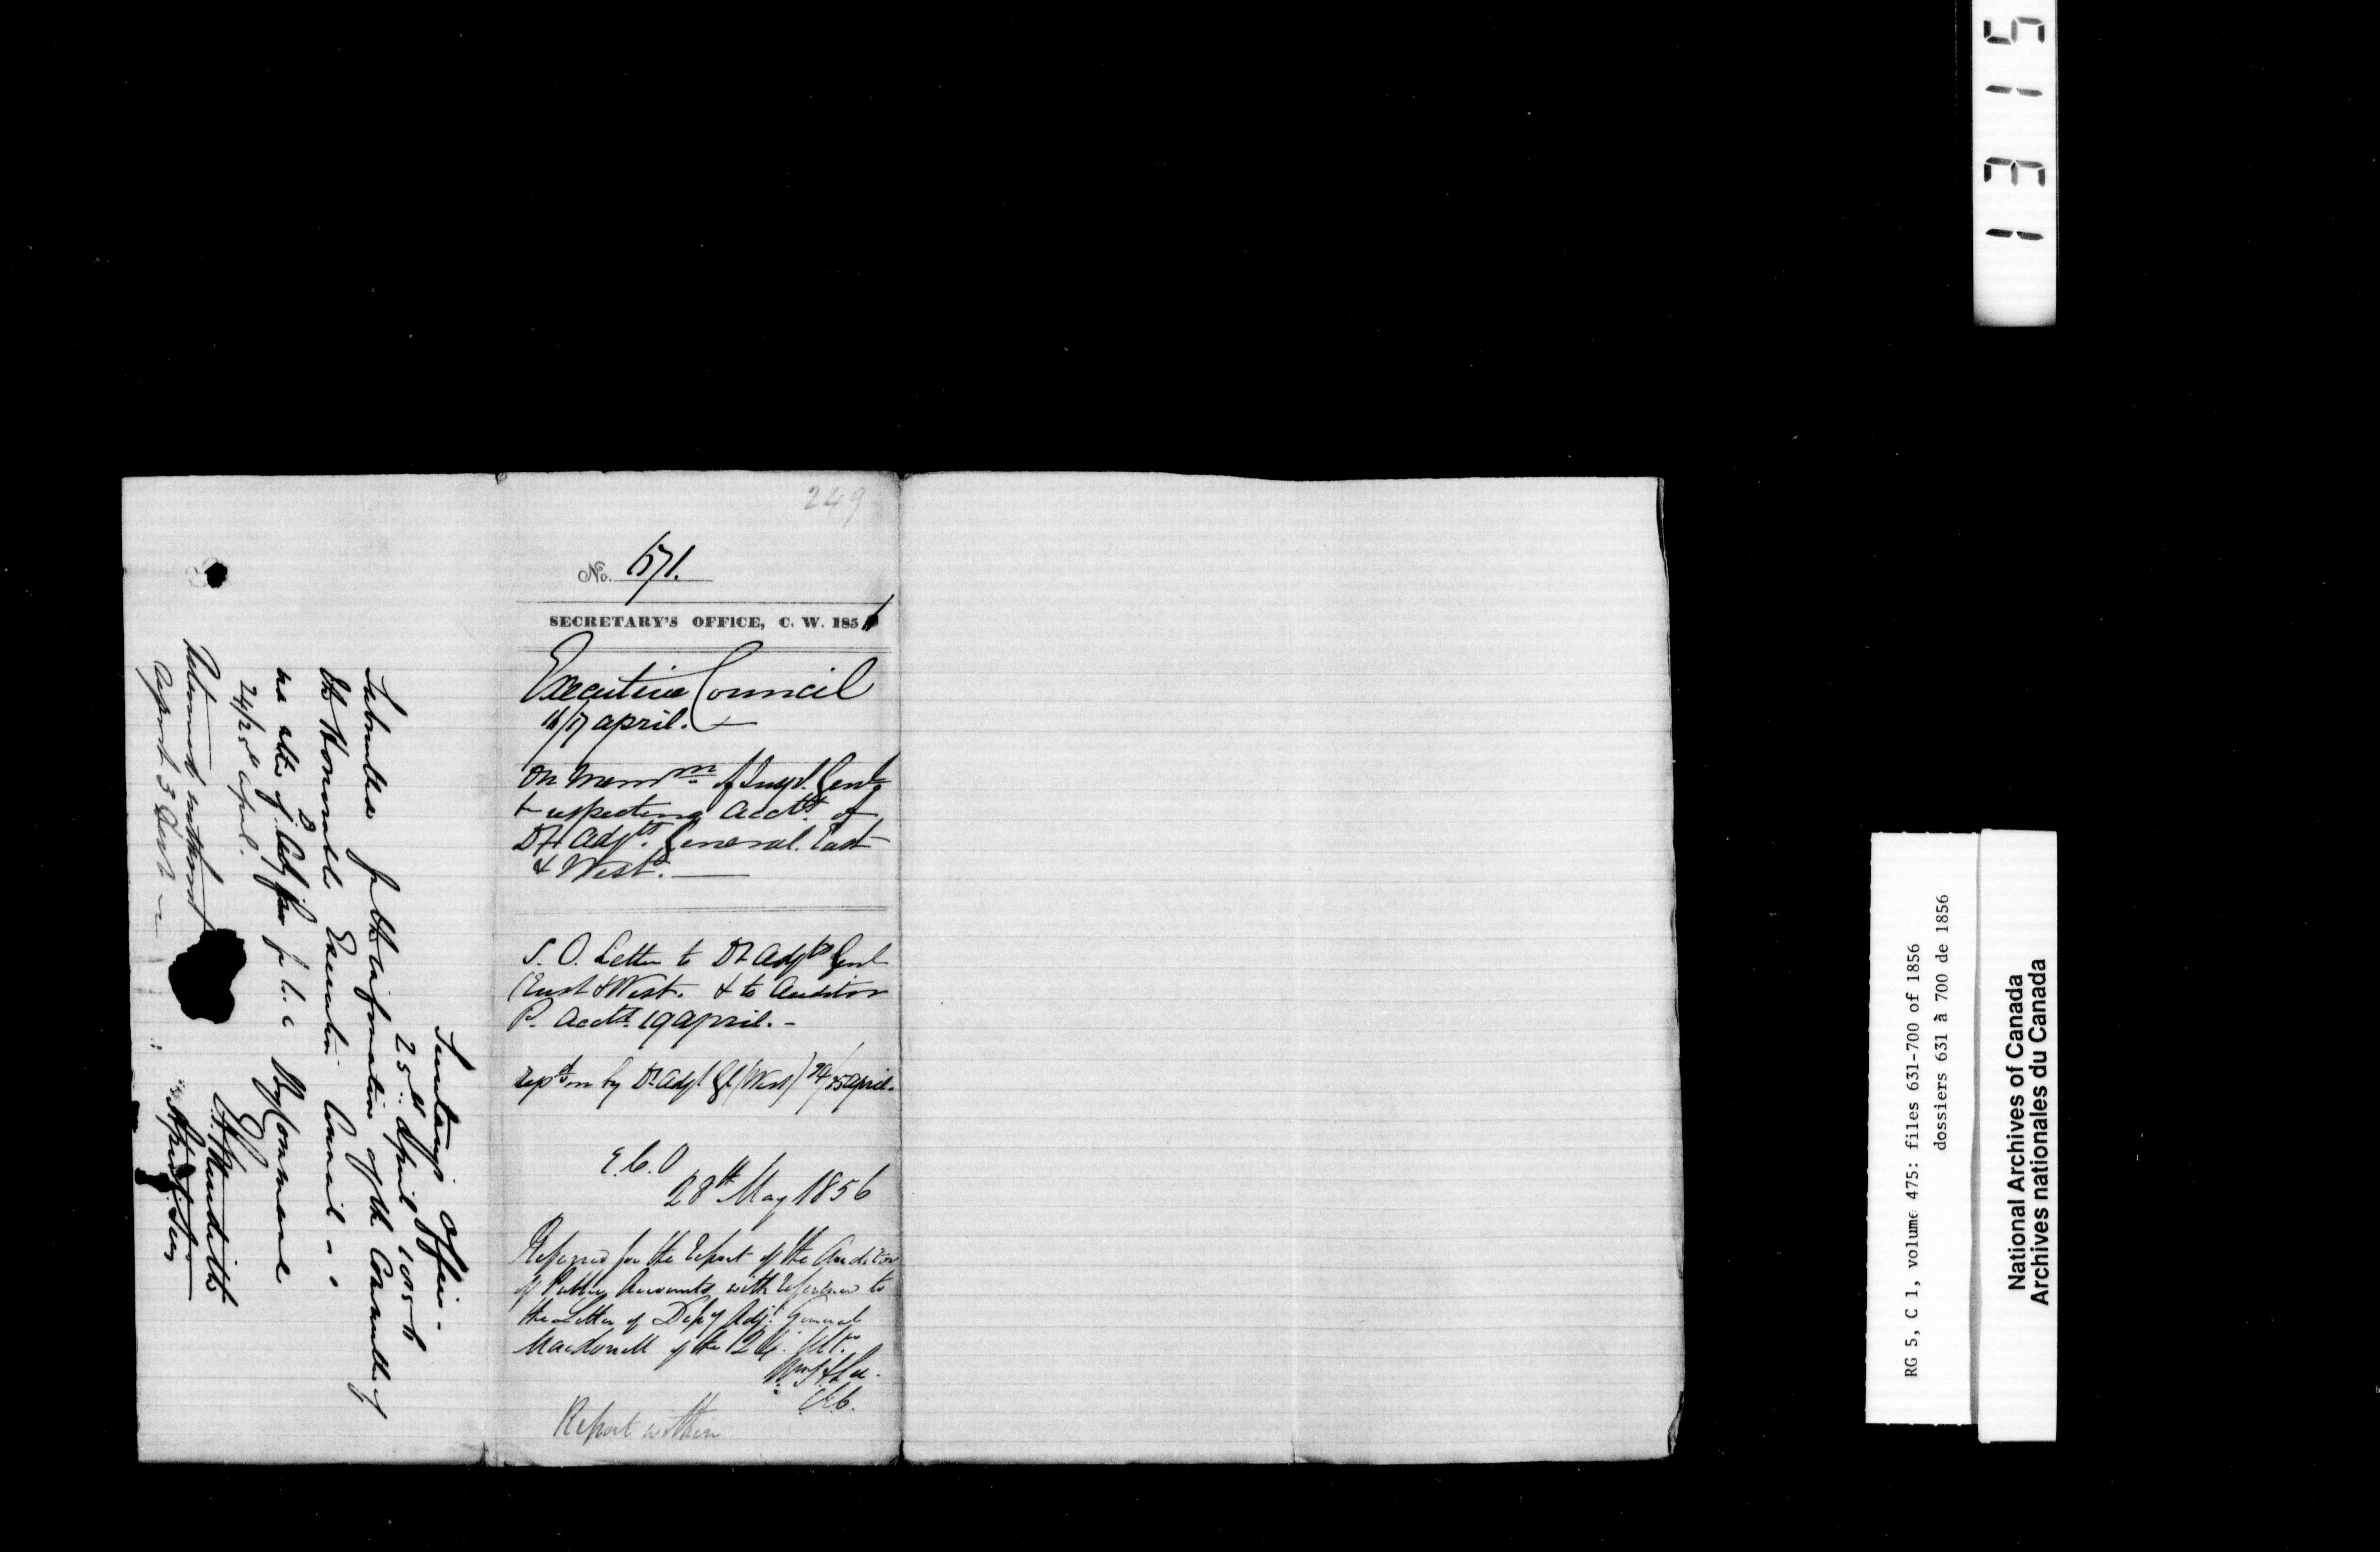 249
No. 671.
SECRETARY'S OFFICE, C. W. 1856
Executive Council
16/17 april.
On Memm of Insp. Genl
respecting Acctts of
Dy Adjts General. East
& West.
S. O. Letter to Dy Adjts Genl
East & West. & to Auditor
P. Accts 19 april. -
Repd on by Dy Adjt Gl (West) 24/25 april.
E. C. O
28th May 1856
Referred for the Report of the Auditor
of Public Accounts with reference to
the Letter of Depy Adjt General
Macdonell of the 24 Ulto
C.E.C.
Report within
Secretary's Office -
25th April 1856
Submitted for the information of the Committee of
the Honorable Executive Council -
24/25th april.
By Command
E. A. Meredith
Asst Secy
Returned
1315
RG 5, C 1, volume 475: files 631-700 of 1856
dossiers 631 à 700 de 1856
National Archives of Canada
Archives nationales du Canada